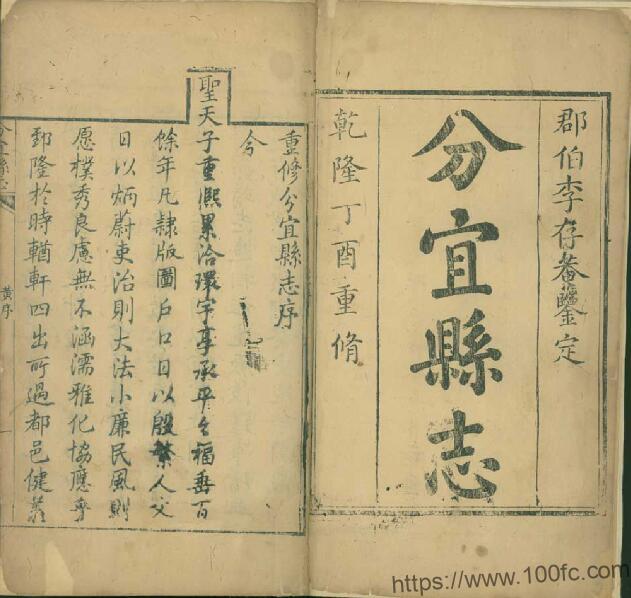 郡伯李存菴鑒定
分宜縣志
乾隆丁酉重脩
重修分宜縣志序
今
聖天子重熙累洽環宇享承平之福垂百
餘年凡隸版圖戶口日以殷繁人文
日以炳蔚吏治則大法小廉民風則
愿樸秀良處無不涵濡雅化協應乎
郅隆於時輶軒四出所過都邑健羨
分宜縣志
黃序
一
https://www.100fc.com